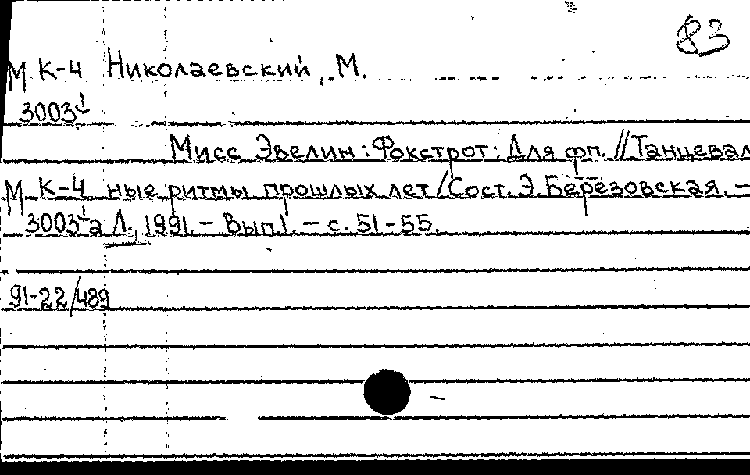 83
М К-4 Николаевский, М.
3003¹
Мисс Эвелин: Фокстрот: Для фп. // Танцевал
М К-4 ные ритмы прошлых лет / Сост. Э. Березовская. –
3003¹а Л., 1991. – Вып. 1. – с. 51-55.
91-22/489